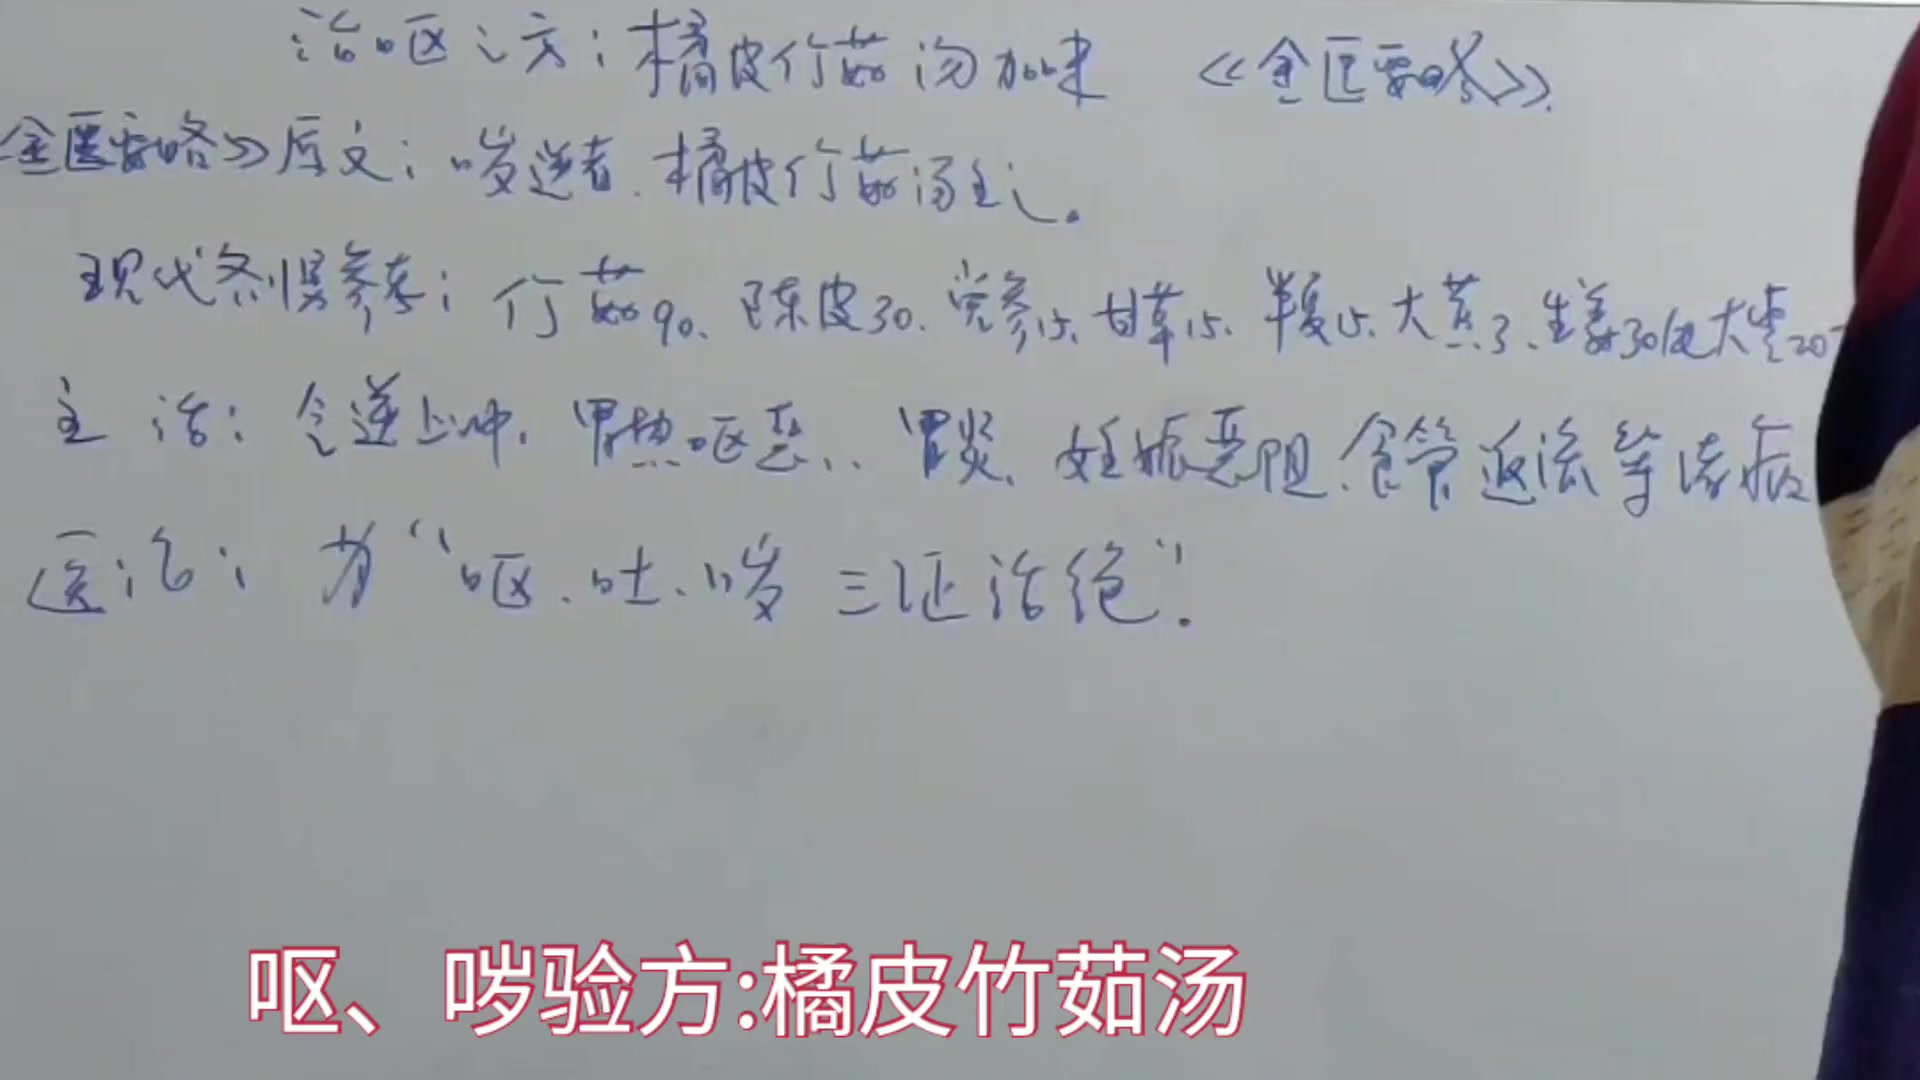 治呕之方：橘皮竹茹汤加味 《金匮要略》.
金匮要略》原文：哕逆者.橘皮竹茹汤主之。
现代剂量参考：竹茹90、陈皮30.党参15.甘草15.半夏15.大黄3、生姜30 大枣20
主治：气逆上冲.胃热呕恶、胃炎、妊娠恶阻、食管返流等诸病
医话：为“呕.吐.哕三证治绝”.
呕、哕验方:橘皮竹茹汤